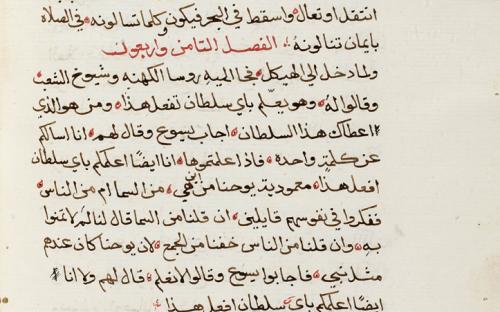 انتقل او تعال واسقط في البحر فيكون وكلما تسالونه في الصلاه
بايمان تنالونه الفصل الثامن واربعون
ولما دخل الي الهيكل فجا اليه روسا الكهنه وشيوخ الشعب
وقالوا له وهو يعلم باي سلطان تفعل هذا ومن هو الذي
اعطاك هذا السلطان اجاب يسوع وقال لهم انا اسالكم
عن كلمة واحدة فاذا علمتموها انا ايضا اعلمكم باي سلطان
افعل هذا معمودية يوحنا من اين هي من السما ام من الناس
ففكروا في نفوسهم قايلين ان قلنا من السما قال لنا لم لا تمنوا
به وان قلنا من الناس خفنا من الجمع لان يوحنا كان عندهم
مثل نبي فاجابوا يسوع وقالوا لا نعلم قال لهم ولا انا
ايضا اعلمكم باي سلطان افعل هذا